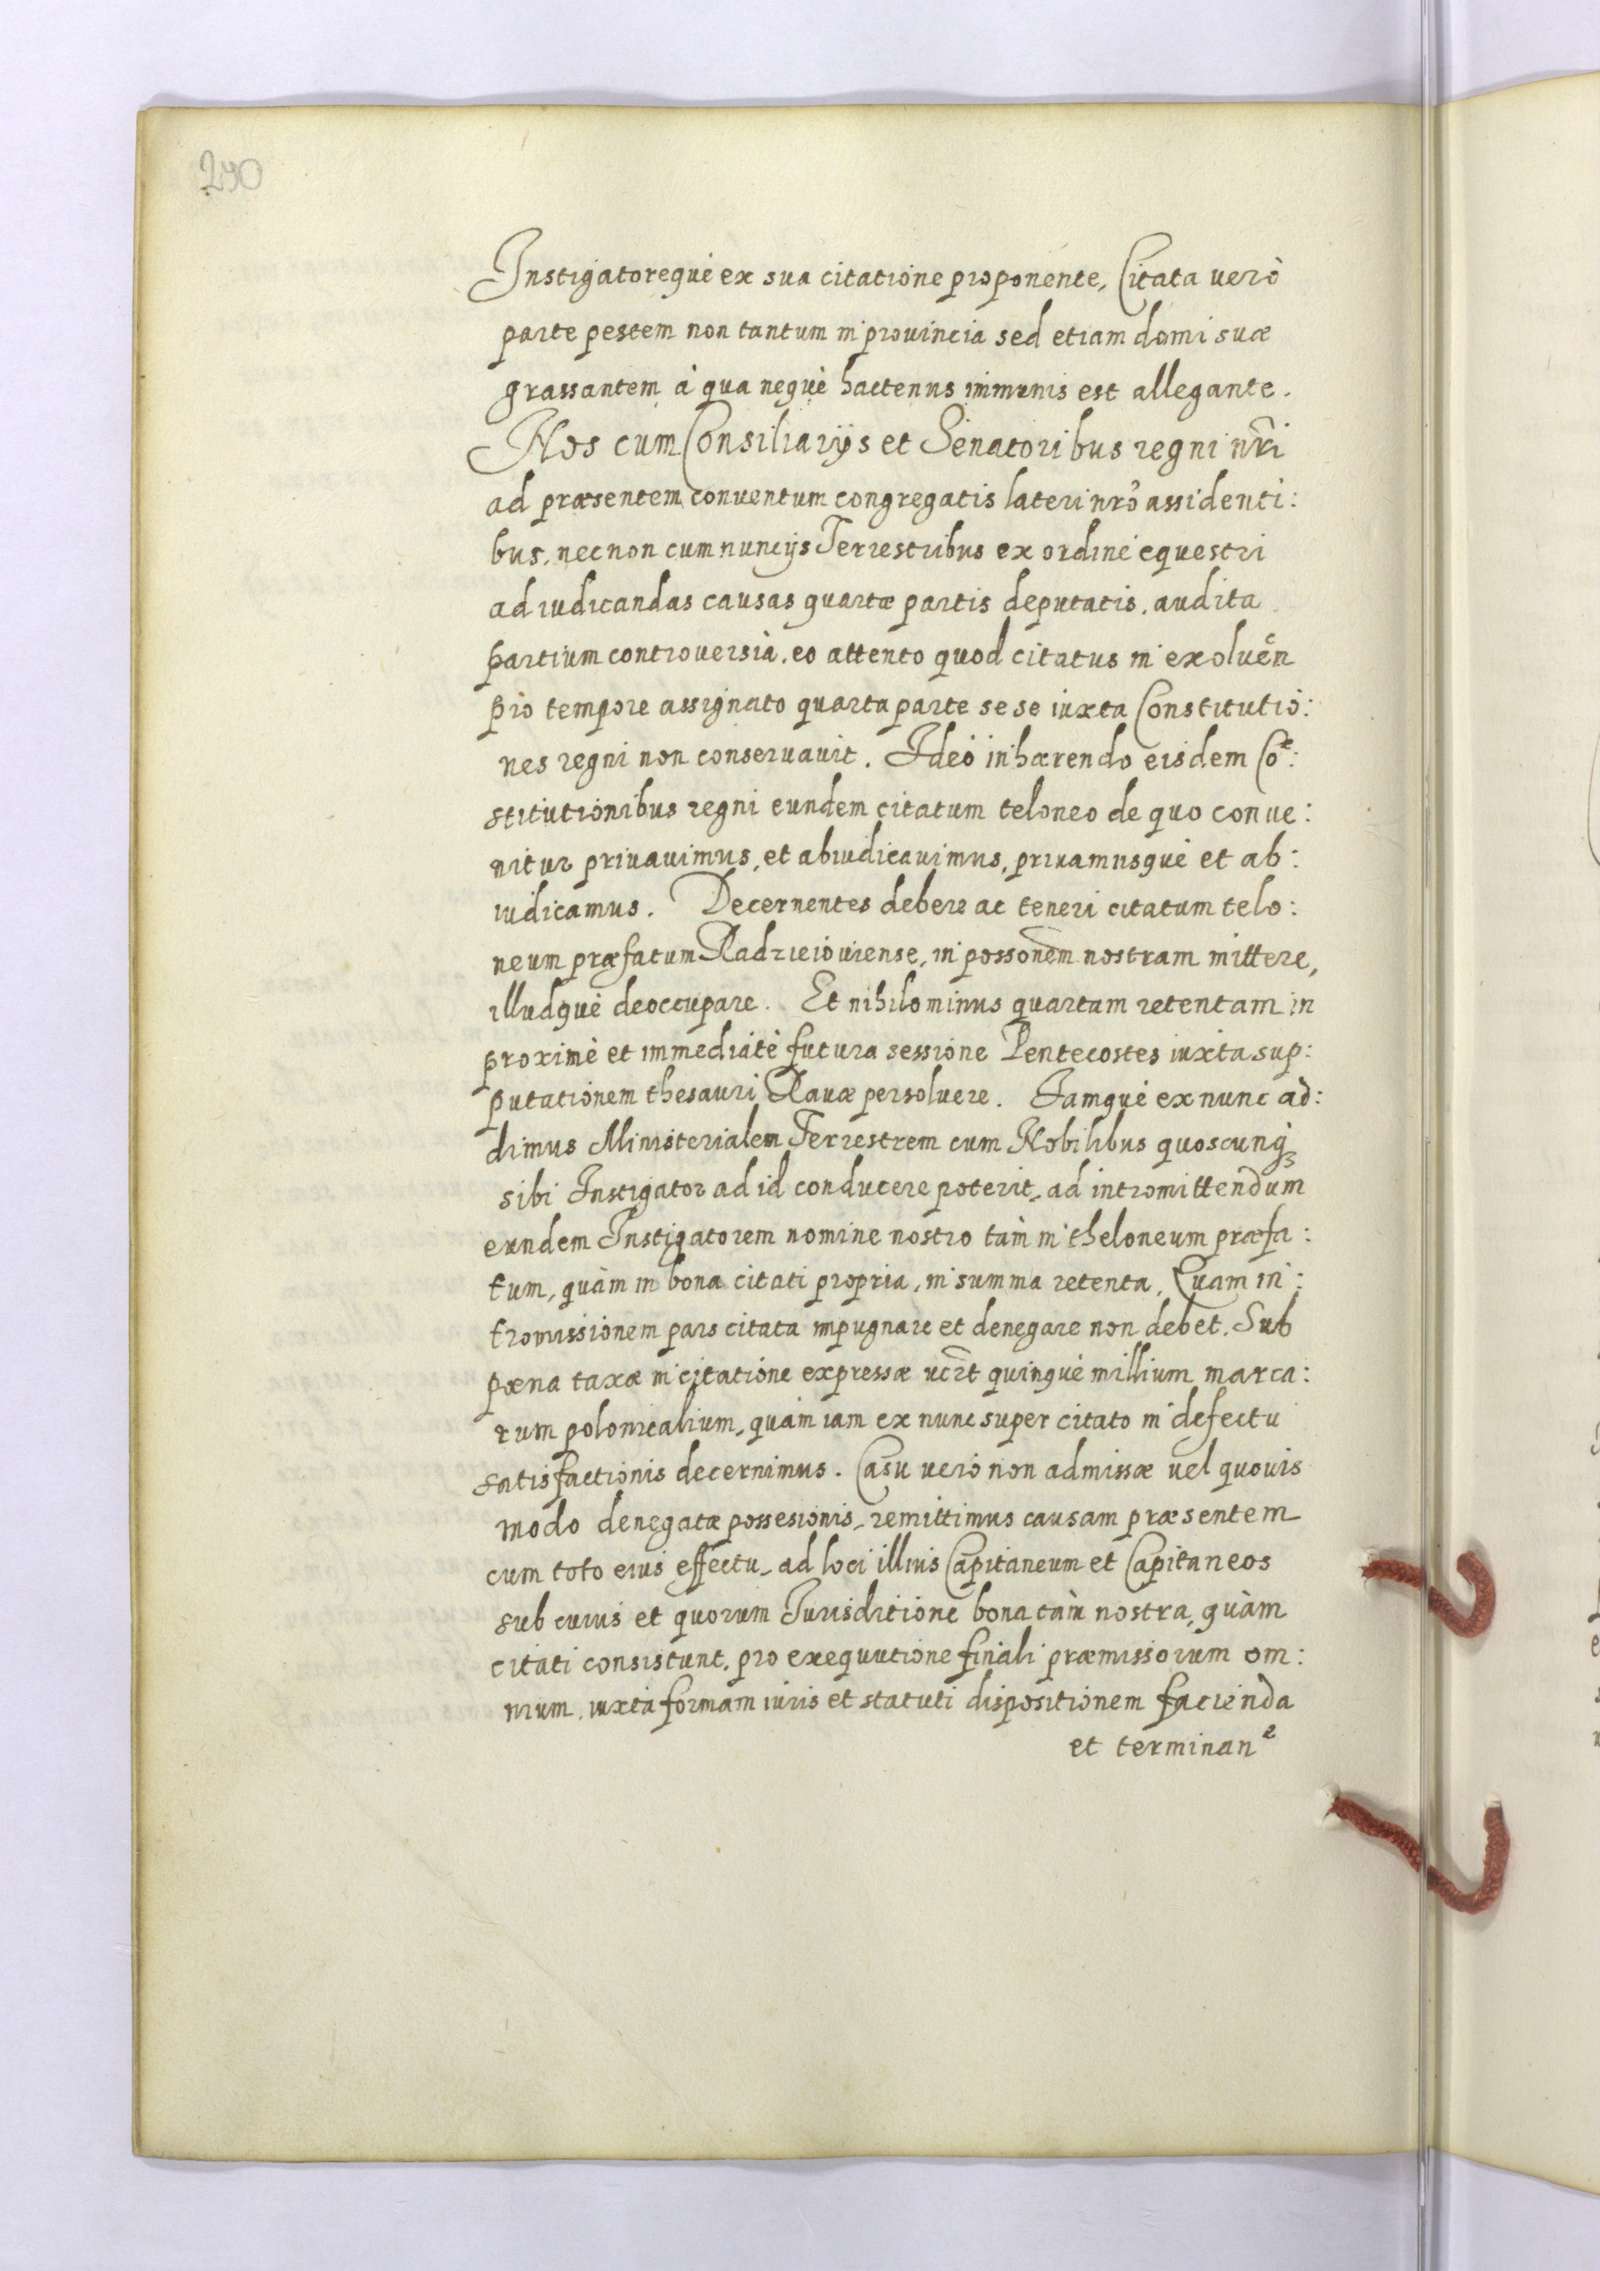 290
Instigatoreque ex sua citatione proponente, Citata verò
parte pestem non tantum in provincia sed etiam domi suæ
grassantem à qua neque hactenus immunis est allegante.
Nos cum Consiliarijs et Senatoribus regni nri̅
ad præsentem conventum congregatis lateri nro̅ assidenti:
bus, nec non cum nuncijs Terrestribus ex ordine equestri
ad iudicandas causas quartæ partis deputatis, audita
partium controversia, eo attento quod citatus in exoluen̅
pro tempore assignato quarta parte sese iuxta Constitutio:
nes regni non conservavit. Ideò inhærendo eisdem Co̅:
stitutionibus regni eundem citatum teloneo de quo conve:
nitur privavimus, et abiudicavimus, privamusque et ab:
iudicamus. Decernentes debere ac teneri citatum telo:
neum præfatum Radzieioviense, in possonem nostram mittere,
illudque deoccupare. Et nihilominus quartam retentam in
proximè et immediatè futura sessione Pentecostes iuxta sup:
putationem thesauri Ravæ persolvere. Iamque ex nunc ad:
dimus Ministerialem Terrestrem cum Nobilibus quoscunq3
sibi Instigator ad id conducere poterit, ad intromittendum
eundem Instigatorem nomine nostro tàm in theloneum præfa:
tum, quàm in bona citati propria, in summa retenta, Quam in:
tromissionem pars citata impugnare et denegare non debet. Sub
pœna taxæ in citatione expressæ vcz̅t quinque millium marca:
rum polonicalium, quàm iam ex nunc super citato in defectu
satisfactionis decernimus. Casu verò non admissæ vel quovis
modo denegatæ possesionis, remittimus causam præsentem
cum toto eius effectu, ad loci illius Capitaneum et Capitaneos
sub cuius et quorum Iurisditione bona tàm nostra, quàm
citati consistunt, pro exequutione finali præmissorum om:
nium, iuxta formam iuris et statuti dispositionem facienda
et terminan̅